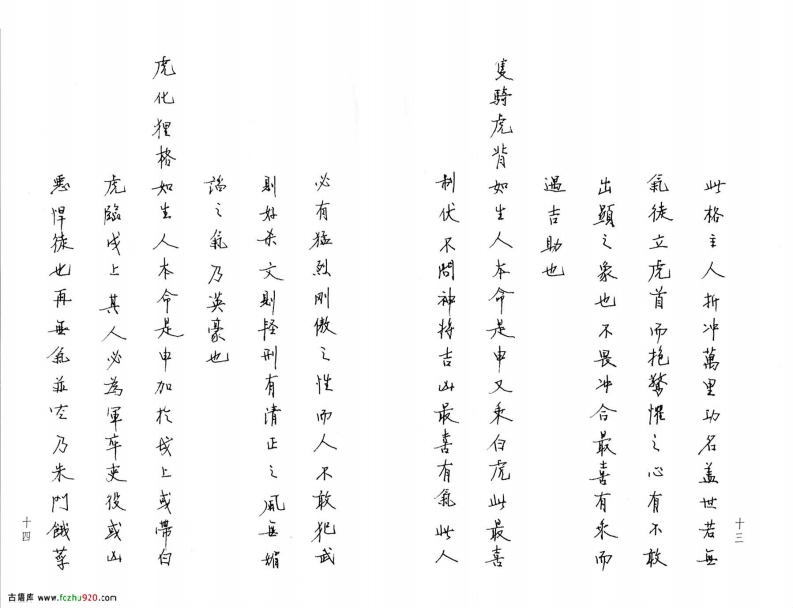 此格主人折冲萬里功名盖世若無
氣徒立虎首而抱驚懼之心有不敢
出顯之象也不畏冲合最喜有乘而
遇吉助也
隻騎虎背如生人本命是申又乘白虎此最喜
制伏不問神将吉凶最喜有氣此人
十三
必有猛烈刚傲之性而人不敢犯武
則好杀文則怪刑有清正之風無媚
謟之氣乃英豪也
虎化狸格如生人本命是申加於戌上或帶白
虎臨戌上其人必為軍卒吏役或凶
悪悍徒也再無氣並空乃朱門餓莩
十四
古籍库 www.fczhu920.com